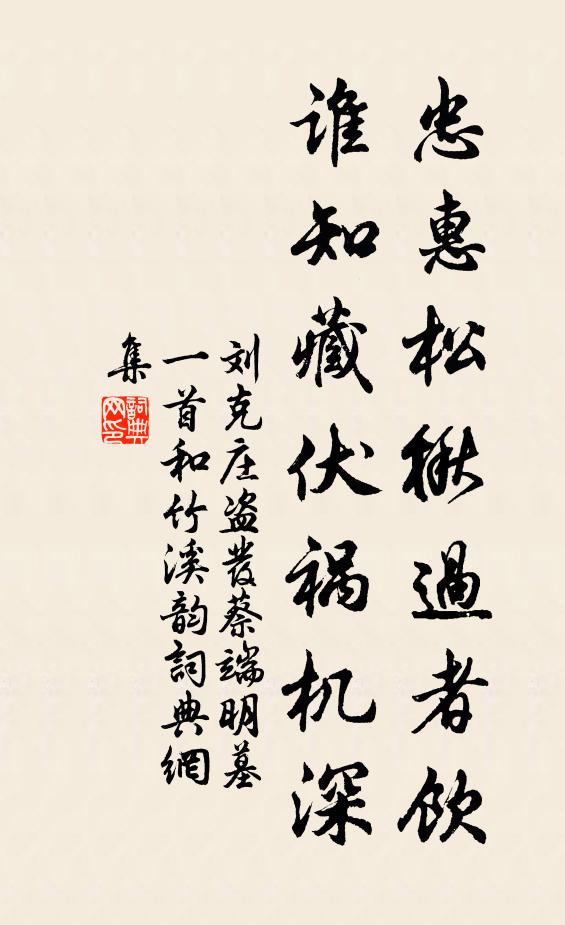 忠惠松楸過者欽
谁知藏伏祸机深
刘克庄盗發蔡端明墓
一首和竹溪韵詞典網
集
詞典
网印